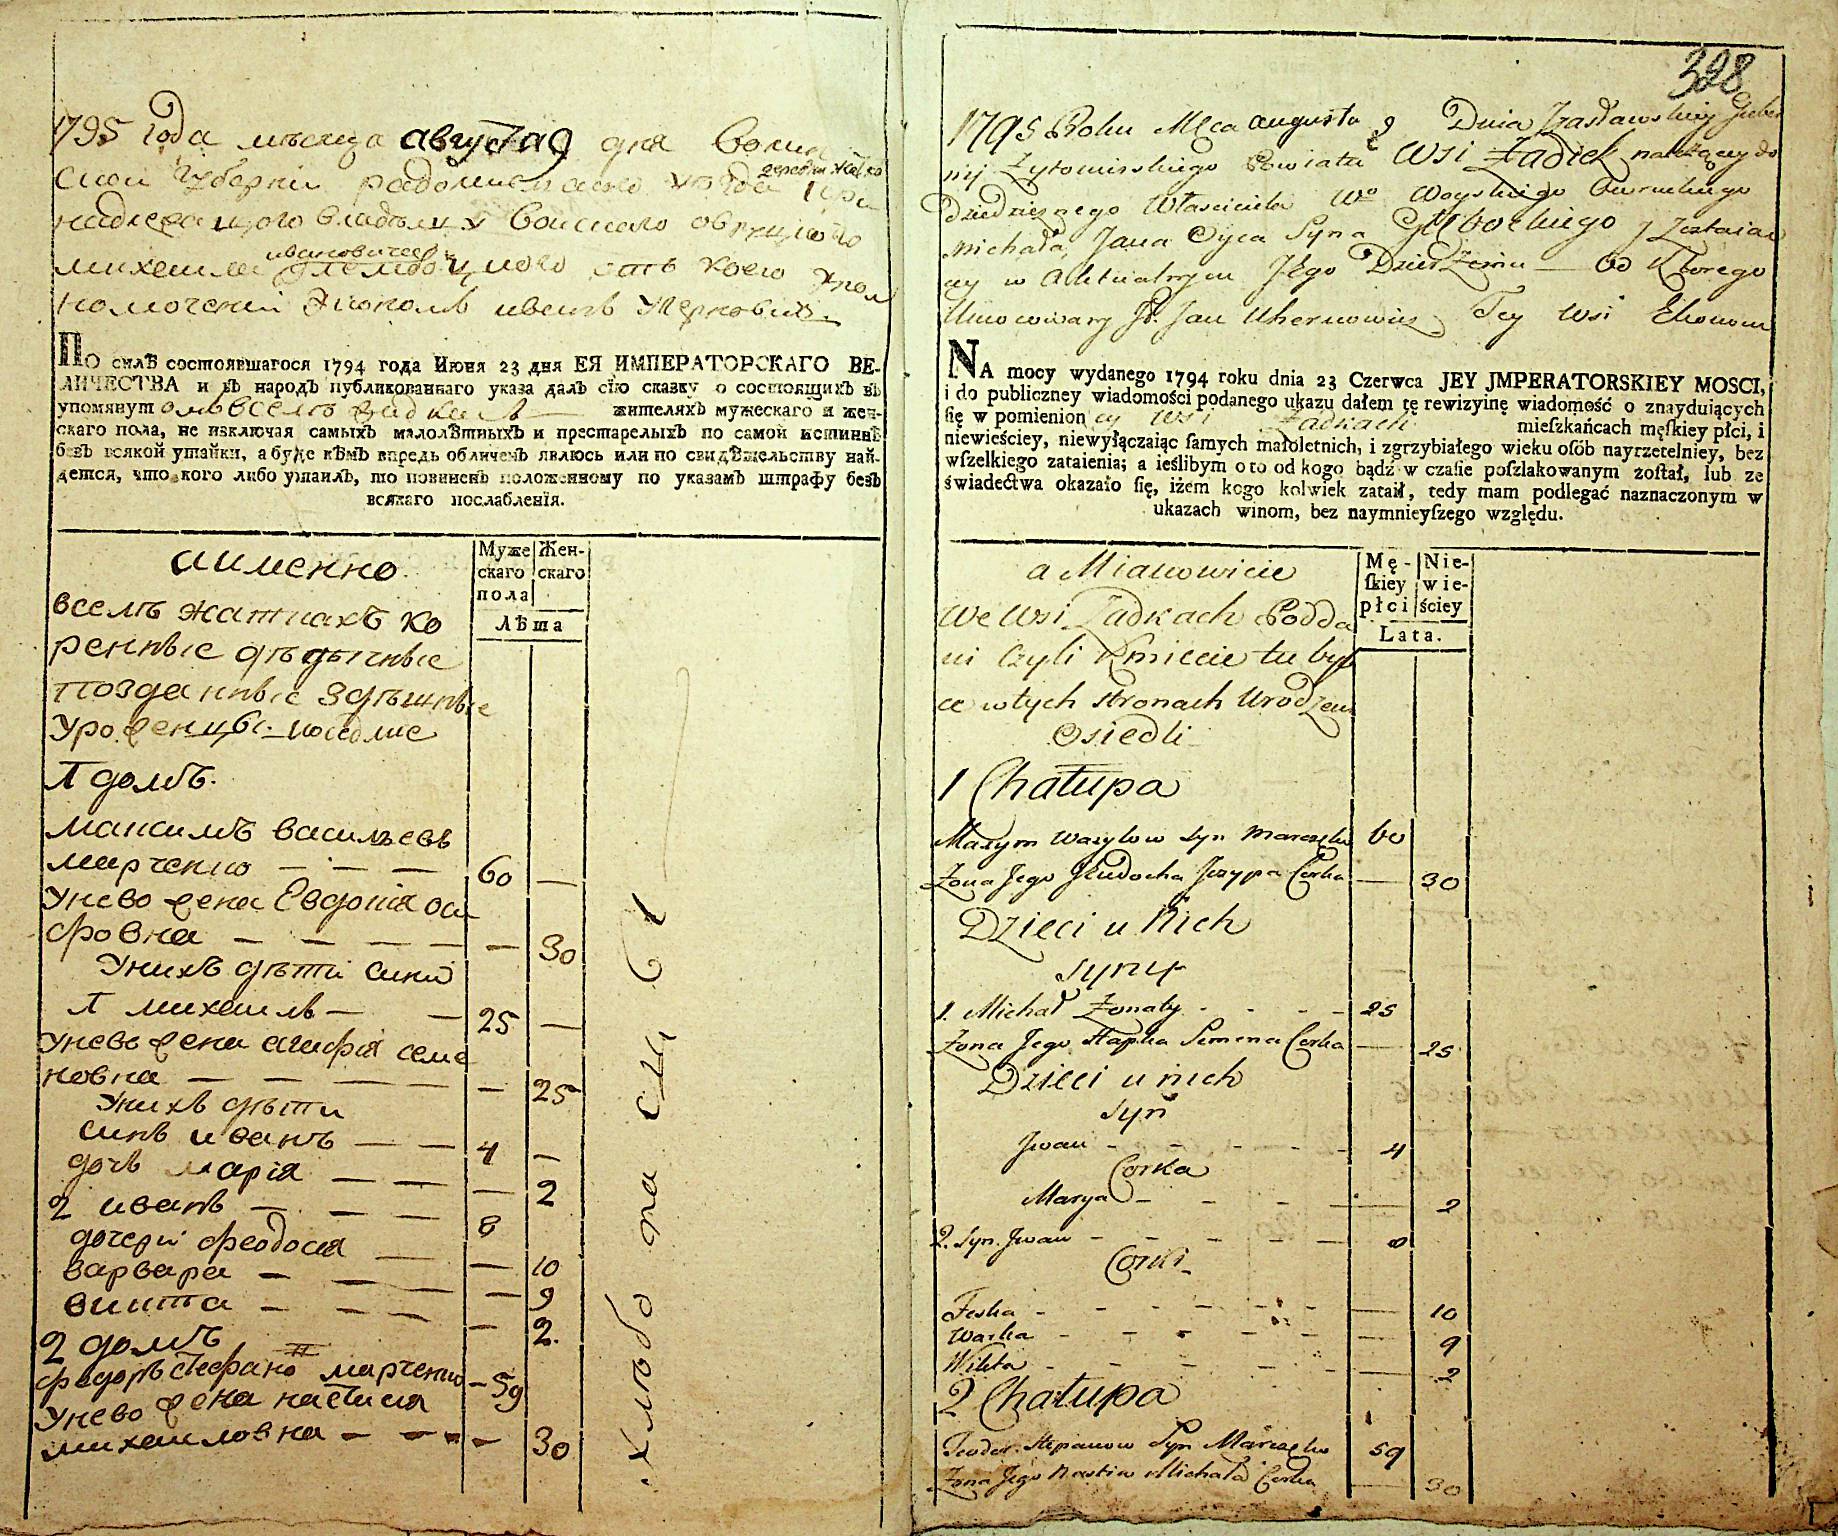 1795 года мѣсяца августа 9 дня Волын
ской губерніи радомисльскаго уезда
надлежащого владѣльцу войскаго овруцкого
ивановичев
михаила от коего упол
номоченій Экономъ иванъ Ухерновичъ
ПО силѣ состоявшагося 1794 года Июня 23 дня ЕЯ ИМПЕРАТОРСКАГО ВЕ-
ЛИЧЕСТВА и въ народъ публикованнаго указа далъ сію сказку о состоящихъ въ
упомянут омъ селѣ жителяхъ мужескаго и жен-
скаго пола, не изключая самыхъ малолѣтныхъ и престарелыхъ по самой истиннѣ
безъ всякой утайки, а буде кѣмъ впредь обличенъ явлюсь или по свидѣтельству най-
дется, что кого либо утаилъ, то повиненъ положенному по указамъ штрафу безъ
всякаго послабленія.
аименно
Муже Жен-
скаго скаго
пола
Лѣта
вселѣ жатнахъ ко
ренные дѣдычные
позданные здѣшные
уроженцы
1 домъ.
максимъ васильевъ
марченко — — — 60 —
унево жена Евдокія оси
фовна — — — — — 30
унихъ дѣти сини
1 михаилъ — — 25 —
унево жена агафія семе
новна — — — — — 25
унихъ дѣти
синъ иванъ — — 4 —
дочъ марія — — — 2
2 иванъ — — — 8
дочери феодосия — — 10
варвара — — — — 9
викта — — — — 2.
2 домъ
федоръ стефано марченко — 59
унево жена настасия
михаиловна — — — 30
328
1795 Roku Mca augusta 9 Dnia Zasławskiey Guber
nij Żytomirskiego Powiatu Wsi Żadiek należący do
Dziedzicznego Właściciela Wo Woyskiego Owruckiego
Michała, Jana Oyca Syna Głębockiego y Zostaiąc
ey w Aktualnym Jego Dzierżeniu — Od Ktorego
Umocowany Jan Uhernowicz Tey Wsi Ekonom
NA mocy wydanego 1794 roku dnia 23 Czerwca JEY JMPERATORSKIEY MOSCI,
i do publiczney wiadomości podanego ukazu dałem tę rewizyinę wiadomość o znayduiących
się w pomienion ey Wsi Żadkach mieſzkańcach męſkiey płci, i
niewieściey, niewyłączaiąc ſamych małoletnich, i zgrzybiałego wieku osób nayrzetelniey, bez
wſzelkiego zataienia; a ieślibym o to od kogo bądź w czaſie poſzlakowanym zoſtał, lub ze
świadectwa okazało ſię, iżem kogo kolwiek zataił, tedy mam podlegać naznaczonym w
ukazach winom, bez naymnieyſzego względu.
a Mianowicie
Mę- Nie-
ſkiey wie-
płci ściey
Lata.
We Wsi Żadkach Podda
ni Czyli Kmiecie tu byt
ce w tych stronach Urodzeni
Osiedli
1 Chałupa
Maxym Wasylow Syn Marczęko 60
Żona Jego Jewdocha Jozypa Corka — 30
Dzieci u Nich
Syny
1. Michał Żonaty - - - 25
Żona Jego Hapka Semena Corka — 25
Dzieci u nich
Syn
Jwan - - - - - - 4
Corka
Marya - - - — 2
2. Syn. Jwan - - - - - 8
Corki
Feska - - - - - — 10
Warka - - - - - — 9
Wikta - - - - - — 2
2 Chałupa
Teodor Stepanow Syn Marczęko 59
Żona Jego Nastia Michała Corka — 30